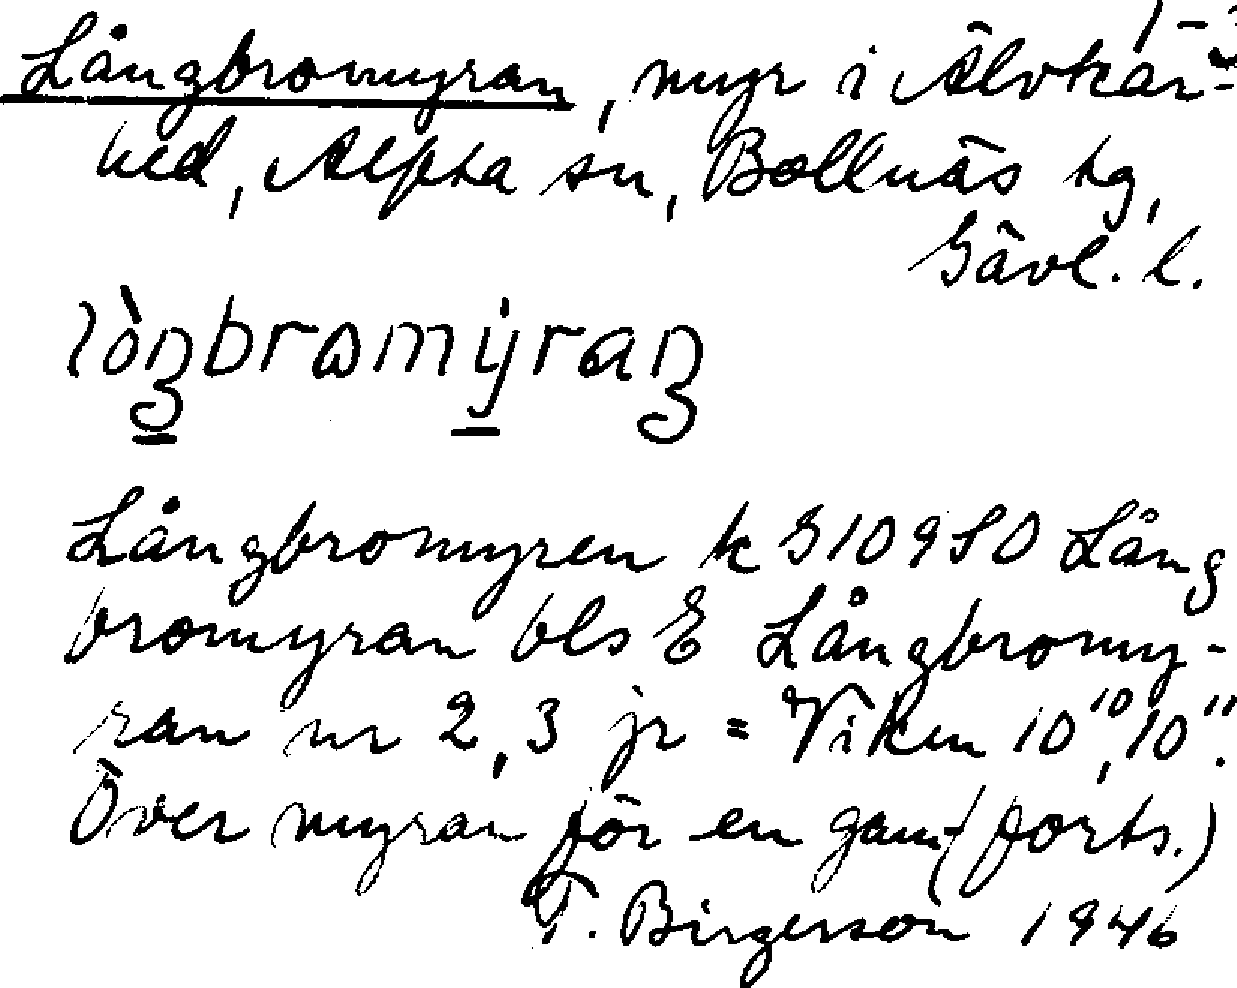 1-3
Långbromyran, myr i Älvkar-
hed, Alfta sn, Bollnäs tg,
Gävl. l.
lòŋbrωmẏraŋ
Långbromyren k G109SO Lång
bromyran bls E Långbromy-
ran nr 2,3 jr = Viken 10¹⁰, 10¹¹.
Över myran för en gam- (forts.)
T. Birgerson 1946